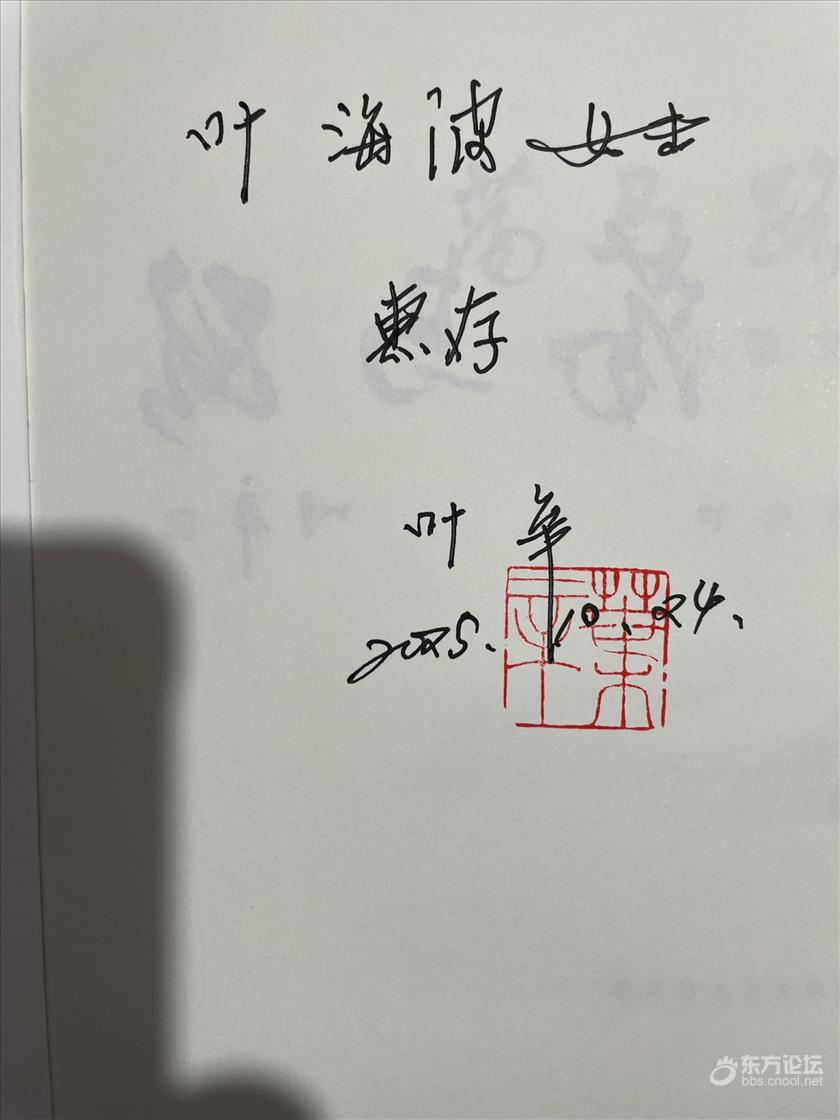 叶海波女士
惠存
叶辛
2025.10.24.
东方论坛
bbs.cnool.net